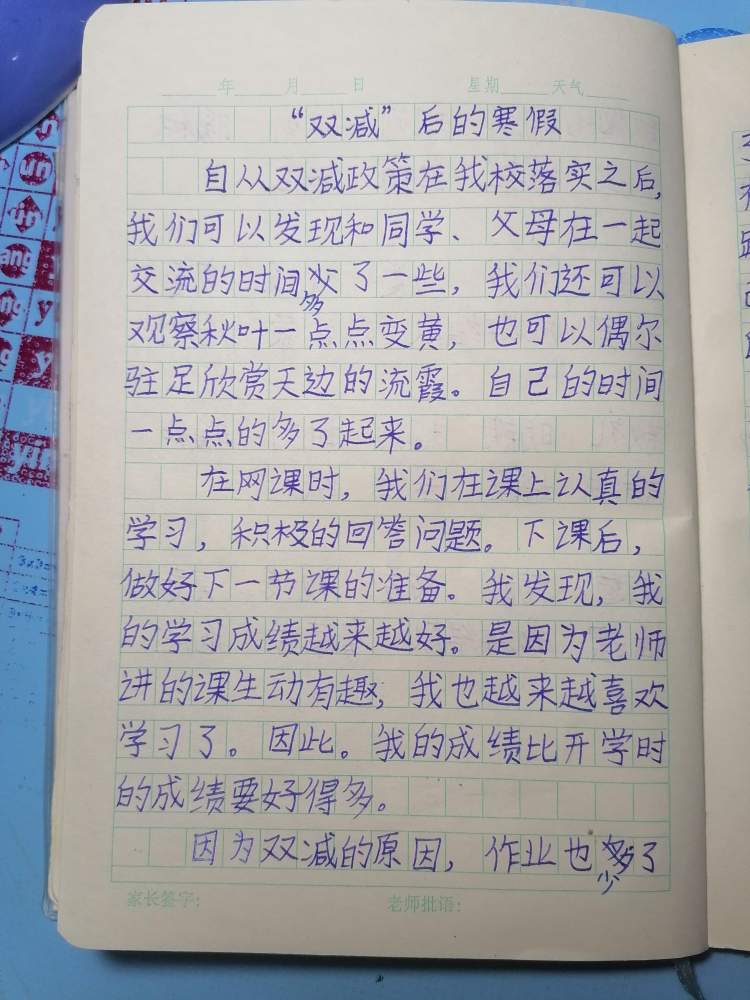 年 月 日 星期 天气
“双减”后的寒假
自从双减政策在我校落实之后,
我们可以发现和同学、父母在一起
交流的时间多了一些,我们还可以
观察秋叶一点点变黄,也可以偶尔
驻足欣赏天边的流霞。自己的时间
一点点的多了起来。
在网课时,我们在课上认真的
学习,积极的回答问题。下课后,
做好下一节课的准备。我发现,我
的学习成绩越来越好。是因为老师
讲的课生动有趣,我也越来越喜欢
学习了。因此。我的成绩比开学时
的成绩要好得多。
因为双减的原因,作业也少了
家长签字: 老师批语: